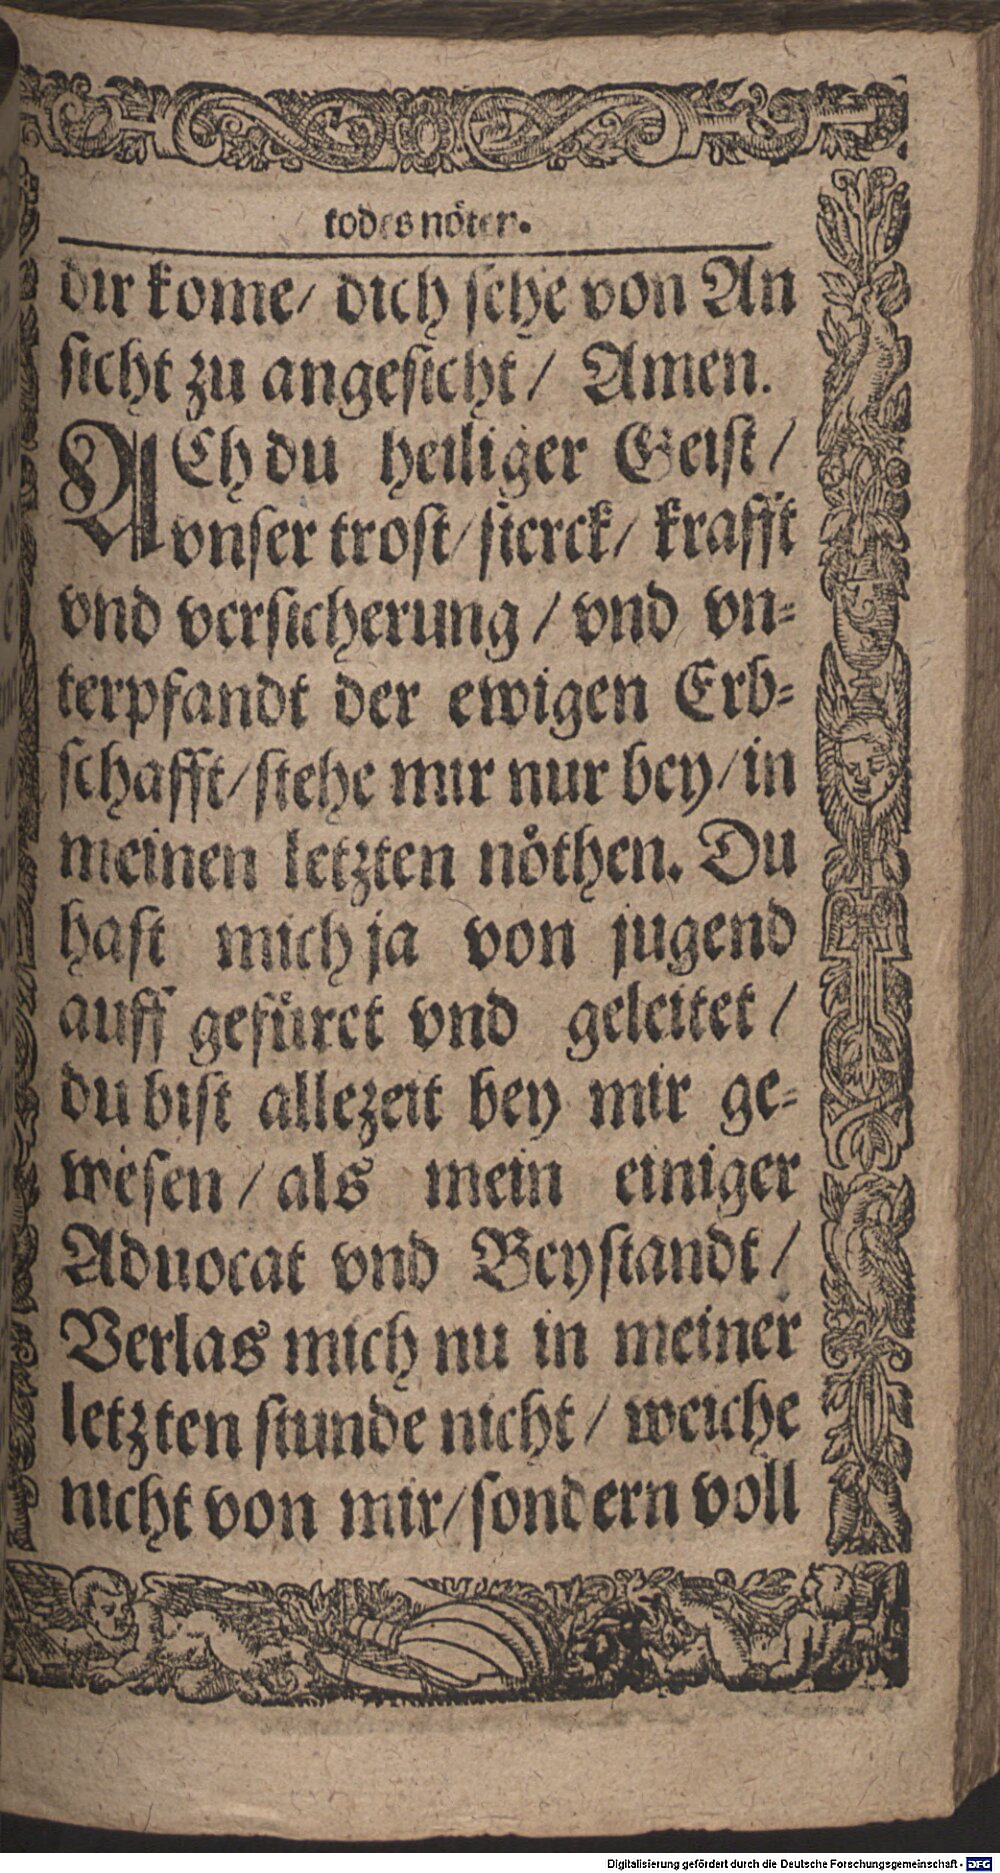 todes nöten.
dir kome/ dich sehe von An
sicht zu angesicht/ Amen.
ACh du heiliger Geist/
vnser trost/ sterck/ krafft
vnd versicherung/ vnd vn⸗
terpfandt der ewigen Erb⸗
schafft/ stehe mir nur bey/ in
meinen letzten nöthen. Du
hast mich ja von jugend
auff gefüret vnd geleitet/
du bist allezeit bey mir ge⸗
wesen/ als mein einiger
Aduocat vnd Beystandt/
Verlas mich nu in meiner
letzten stunde nicht/ weiche
nicht von mir/ sondern voll
Digitalisierung gefördert durch die Deutsche Forschungsgemeinschaft - DFG